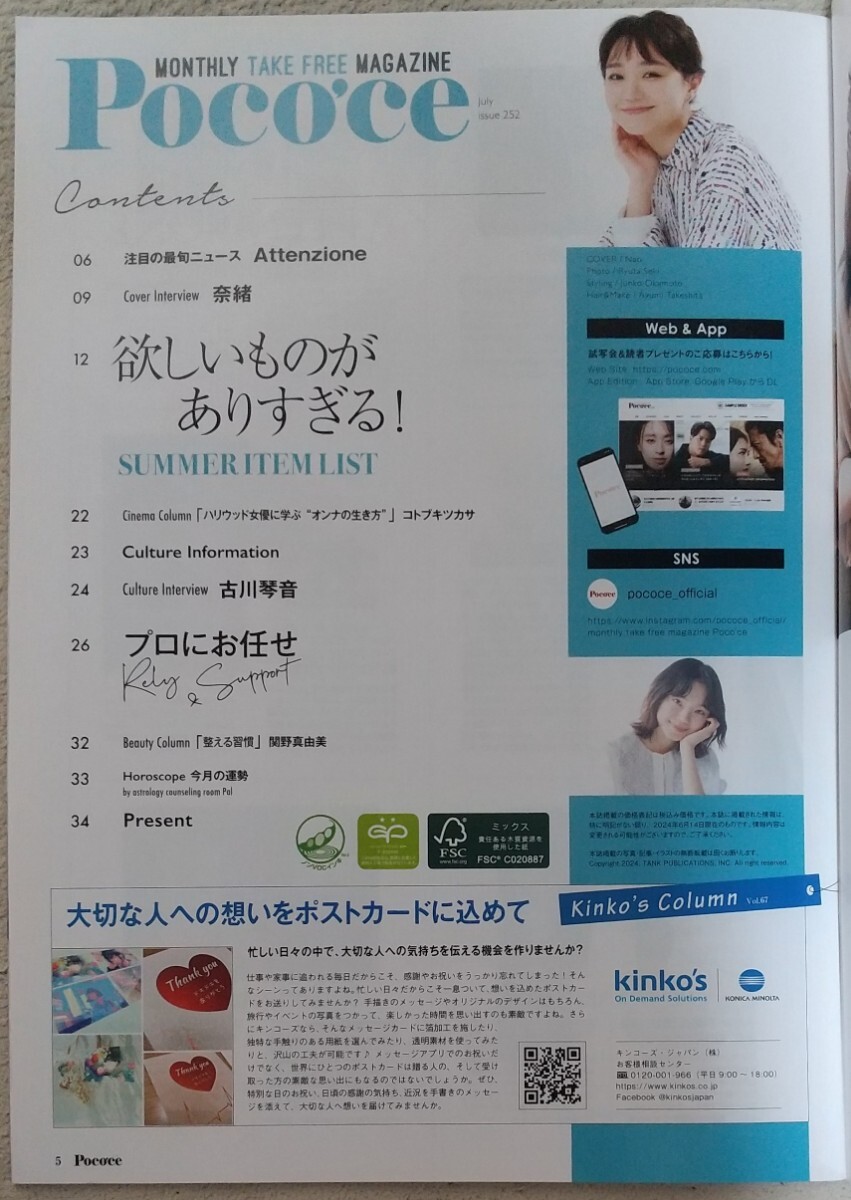 MONTHLY TAKE FREE MAGAZINE
Poco'ce
July
issue 252
Contents
06 注目の最旬ニュース Attenzione
09 Cover Interview 奈緒
12 欲しいものが
ありすぎる!
SUMMER ITEM LIST
22 Cinema Column「ハリウッド女優に学ぶ “オンナの生き方”」コトブキツカサ
23 Culture Information
24 Culture Interview 古川琴音
26 プロにお任せ
Rely & Support
32 Beauty Column「整える習慣」関野真由美
33 Horoscope 今月の運勢
by astrology counseling room Pal
34 Present
COVER / Nao
Web & App
試写会&読者プレゼントのご応募はこちらから!
Web Site https://pococe.com
App Edition App Store Google Play から DL
Poco'ce
SNS
Poco'ce
pococe_official
https://www.instagram.com/pococe_official/
monthly take free magazine Poco'ce
本誌掲載の価格表記は税込み価格です。本誌に掲載された情報は、
特に明記がない限り、2024年6月14日現在のものです。情報内容は
変更される可能性がございますので、ご了承ください。
本誌掲載の写真・記事・イラストの無断転載は固くお断りします。
Copyright 2024, TANK PUBLICATIONS, INC. All right reserved.
FSC
www.fsc.org
ミックス
責任ある木質資源を
使用した紙
FSC® C020887
Kinko's Column Vol.67
大切な人への想いをポストカードに込めて
忙しい日々の中で、大切な人への気持ちを伝える機会を作りませんか?
仕事や家事に追われる毎日だからこそ、感謝やお祝いをうっかり忘れてしまった!そん
なシーンってありますよね。忙しい日々だからこそ一息ついて、想いを込めたポストカー
ドをお送りしてみませんか? 手描きのメッセージやオリジナルのデザインはもちろん、
旅行やイベントの写真をつかって、楽しかった時間を思い出のも素敵ですよね。さら
にキンコーズなら、そんなメッセージカードに箔加工を施したり、
独特な手触りのある用紙を選んでみたり、透明素材を使ってみた
りと、沢山の工夫が可能です♪ メッセージアプリでのお祝いだ
けでなく、世界にひとつのポストカードは贈る人の、そして受け
取った方の素敵な思い出にもなるのではないでしょうか。ぜひ、
特別な日のお祝い、日頃の感謝の気持ち、近況を手書きのメッセー
ジを添えて、大切な人へ想いを届けてみませんか。
Thank you
Thank you
kinko's
On Demand Solutions
KONICA MINOLTA
キンコーズ・ジャパン(株)
お客様相談センター
0120-001-966(平日 9:00〜18:00)
https://www.kinkos.co.jp
Facebook @kinkosjapan
5 Poco'ce